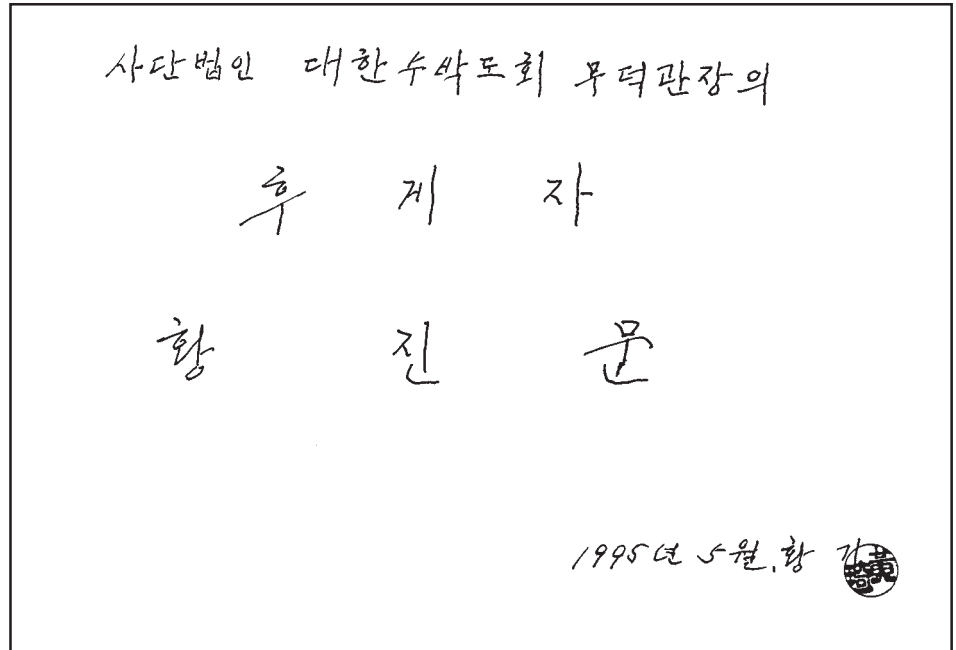 사단법인 대한수박도회 무덕관장의
후계자
황진문
1995년 5월. 황 기
黃琦